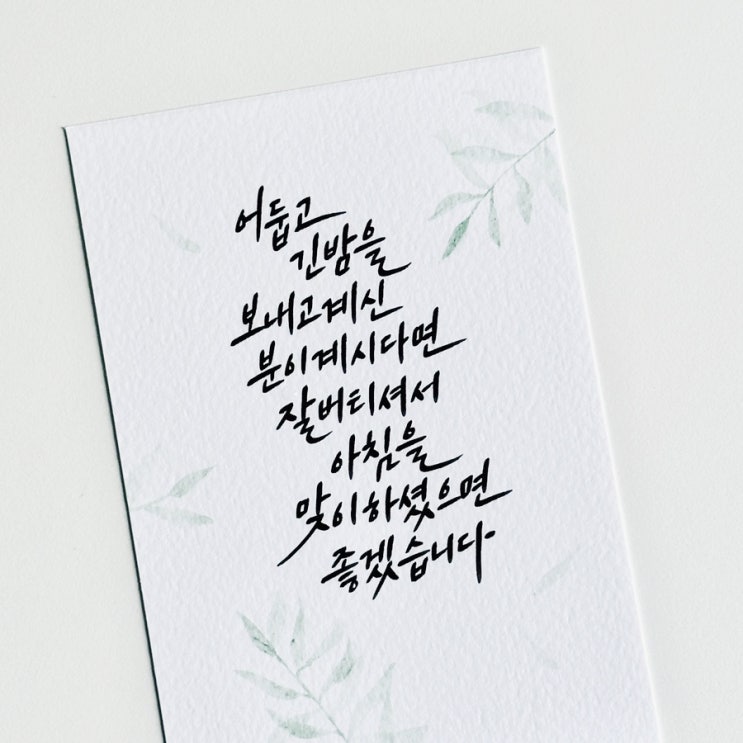 어둡고
긴밤을
보내고계신
분이계시다면
잘버티셔서
아침을
맞이하셨으면
좋겠습니다.